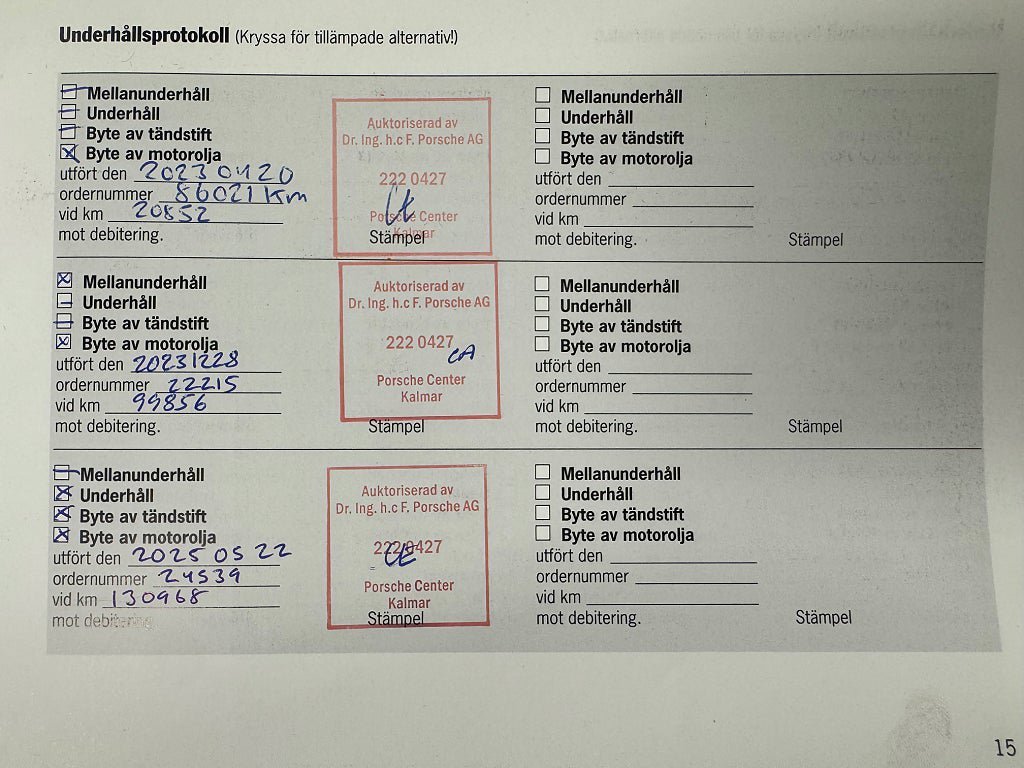 Underhållsprotokoll (Kryssa för tillämpade alternativ!)
Mellanunderhåll
Underhåll
Byte av tändstift
Byte av motorolja
utfört den 2023 04 20
ordernummer 86021 Km
vid km 20852
mot debitering.
Auktoriserad av
Dr. Ing. h.c F. Porsche AG
222 0427
Porsche Center
Kalmar
Stämpel
Mellanunderhåll
Underhåll
Byte av tändstift
Byte av motorolja
utfört den
ordernummer
vid km
mot debitering.
Stämpel
Mellanunderhåll
Underhåll
Byte av tändstift
Byte av motorolja
utfört den 20231228
ordernummer 22215
vid km 99856
mot debitering.
Auktoriserad av
Dr. Ing. h.c F. Porsche AG
222 0427
CA
Porsche Center
Kalmar
Stämpel
Mellanunderhåll
Underhåll
Byte av tändstift
Byte av motorolja
utfört den
ordernummer
vid km
mot debitering.
Stämpel
Mellanunderhåll
Underhåll
Byte av tändstift
Byte av motorolja
utfört den 2025 05 22
ordernummer 24539
vid km 130968
mot debitering
Auktoriserad av
Dr. Ing. h.c F. Porsche AG
222 0427
Porsche Center
Kalmar
Stämpel
Mellanunderhåll
Underhåll
Byte av tändstift
Byte av motorolja
utfört den
ordernummer
vid km
mot debitering.
Stämpel
15